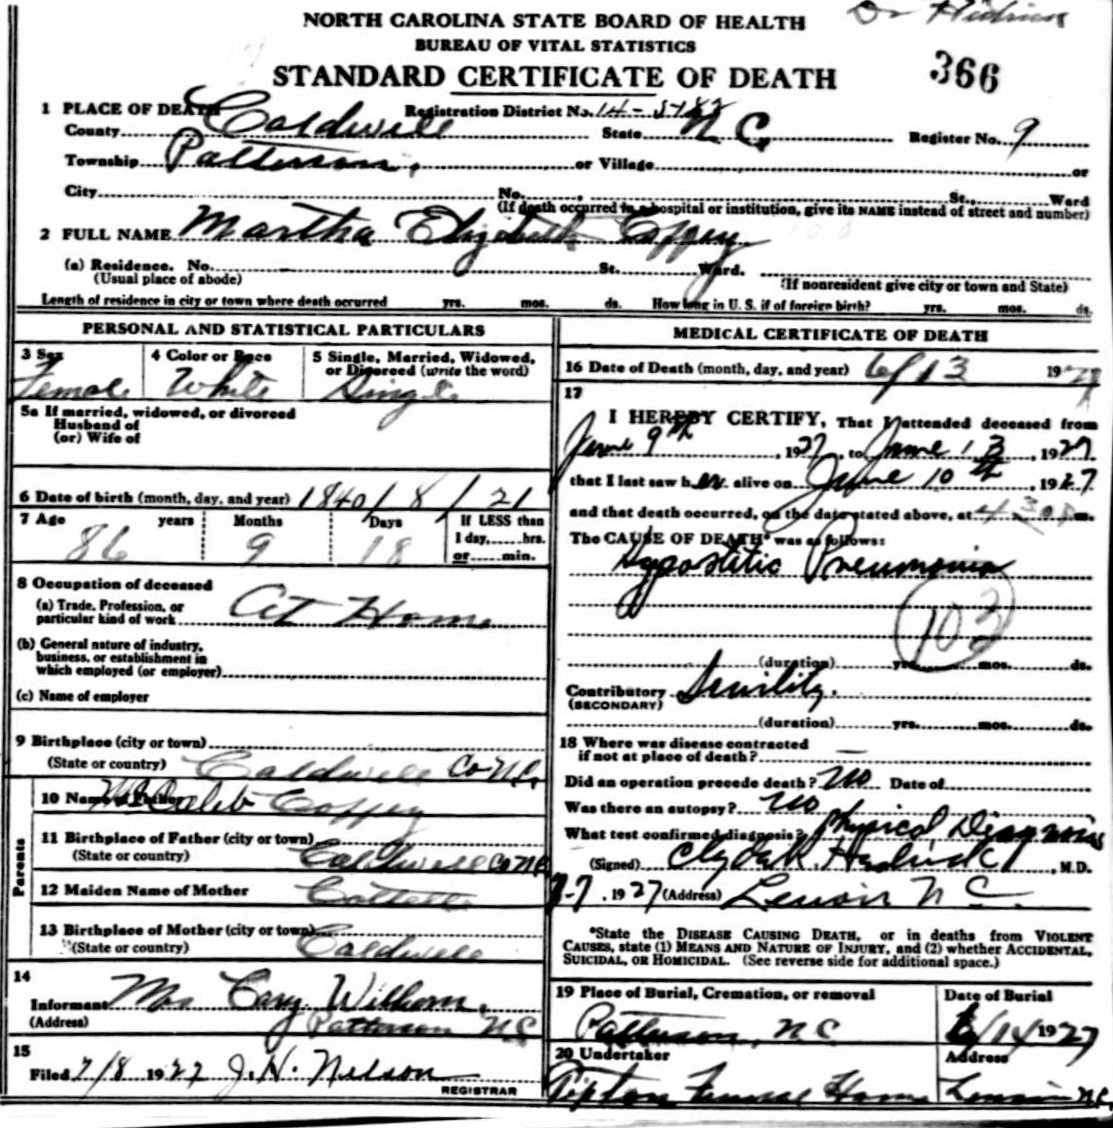 Dr
NORTH CAROLINA STATE BOARD OF HEALTH
BUREAU OF VITAL STATISTICS
STANDARD CERTIFICATE OF DEATH
366
1 PLACE OF DEATH Registration District No. 14-5182
County Caldwell State N C. Register No. 9
Township Patterson, or Village or
City No. St., Ward
(If death occurred in a hospital or institution, give its NAME instead of street and number)
2 FULL NAME Martha Elizabeth Coffey
(a) Residence. No. St. Ward.
(Usual place of abode) (If nonresident give city or town and State)
Length of residence in city or town where death occurred yrs. mos. ds. How long in U. S. if of foreign birth? yrs. mos. ds.
PERSONAL AND STATISTICAL PARTICULARS
3 Sex 4 Color or Race 5 Single, Married, Widowed, or Divorced (write the word)
Female White Single
5a If married, widowed, or divorced
Husband of
(or) Wife of
6 Date of birth (month, day, and year) 1840/8/21
7 Age years Months Days If LESS than
86 9 18 1 day, hrs.
or min.
8 Occupation of deceased
(a) Trade, Profession, or
particular kind of work At Home
(b) General nature of industry,
business, or establishment in
which employed (or employer)
(c) Name of employer
9 Birthplace (city or town)
(State or country) Caldwell Co N.C.
Parents
10 Name of Father Caleb Coffey
11 Birthplace of Father (city or town)
(State or country) Caldwell Co N.C.
12 Maiden Name of Mother
13 Birthplace of Mother (city or town)
(State or country) Caldwell
14
Informant Mrs Cary
(Address) Patterson N C
15
Filed 7/8 1927 J. H. Nelson
REGISTRAR
MEDICAL CERTIFICATE OF DEATH
16 Date of Death (month, day, and year) 6/13 1927
17
I HEREBY CERTIFY, That I attended deceased from
June 9th, 1927, to June 13, 1927
that I last saw her alive on June 10th, 1927
and that death occurred, on the date stated above, at 4 30 m.
The CAUSE OF DEATH* was as follows:
Hypostitic Pneumonia
103
(duration) yrs. mos. ds.
Contributory Senility.
(SECONDARY)
(duration) yrs. mos. ds.
18 Where was disease contracted
if not at place of death? —
Did an operation precede death? No Date of
Was there an autopsy? No
What test confirmed diagnosis? Physical Diagnosis
(Signed) Clyde R. Hedrick, M.D.
7-7, 1927 (Address) Lenoir N C.
*State the DISEASE CAUSING DEATH, or in deaths from VIOLENT
CAUSES, state (1) MEANS AND NATURE OF INJURY, and (2) whether ACCIDENTAL,
SUICIDAL, OR HOMICIDAL. (See reverse side for additional space.)
19 Place of Burial, Cremation, or removal Date of Burial
Patterson, N C 6/14 1927
20 Undertaker Address
Tipton Funeral Home Lenoir N.C.